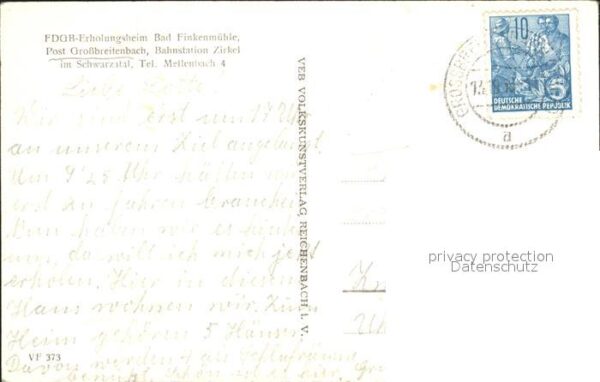 FDGB-Erholungsheim Bad Finkenmühle,
Post Großbreitenbach, Bahnstation Zirkel
im Schwarzatal, Tel. Mellenbach 4
Liebe Lotte!
Wir sind erst um 17 Uhr
an unserem Ziel angelangt.
Um 9²⁵ Uhr hätten wir
erst zu fahren brauchen.
Nun haben wir es hinter
uns, da will ich mich jetzt
erholen. Hier in diesem
Haus wohnen wir. Zum
Heim gehören 5 Häuser.
Davon werden als
VF 373
VEB VOLKSKUNSTVERLAG REICHENBACH i. V.
10
5
DEUTSCHE
DEMOKRATISCHE REPUBLIK
a
privacy protection
Datenschutz